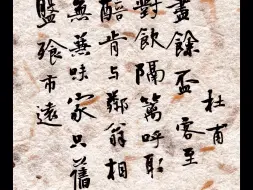 盤飧市遠
無蒹味家只舊
醅肯与鄰翁相
對飲隔籬呼取
盡餘盃 客至
杜甫